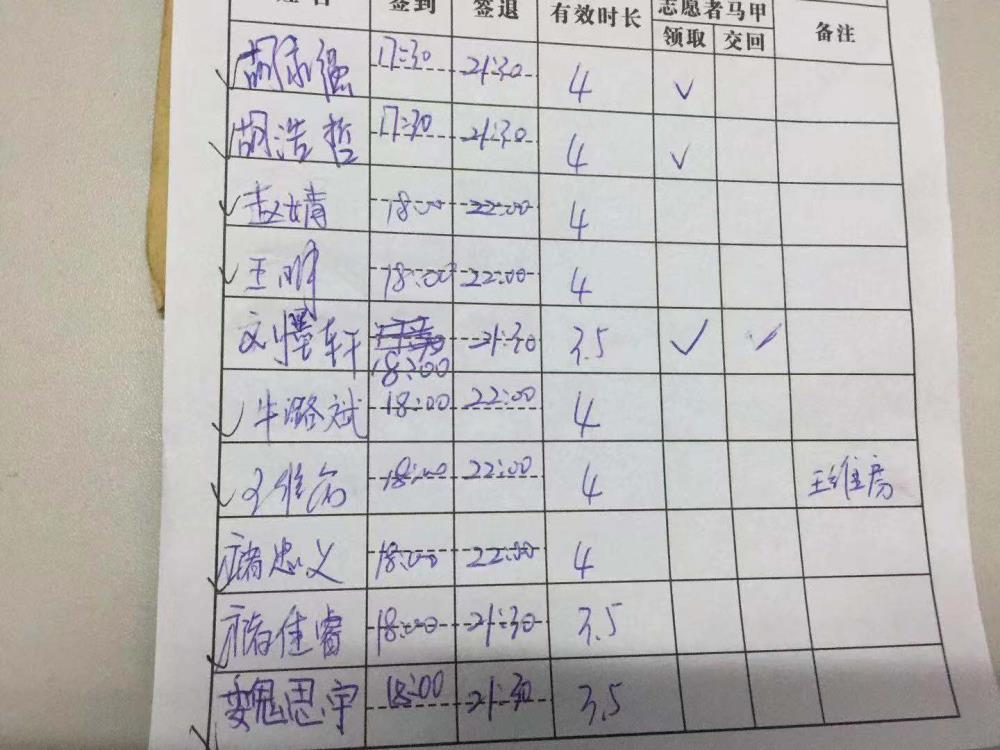 姓名 签到 签退 有效时长 志愿者马甲 备注
领取 交回
胡永强 17:30 21:30 4 ✓
胡浩哲 17:30 21:30 4 ✓
赵婧 18:00 22:00 4
王明 18:00 22:00 4
刘 轩 18:00 21:30 3.5 ✓ ✓
牛潞斌 18:00 22:00 4
王维 18:00 22:00 4 王维房
褚忠义 18:00 22:00 4
褚佳睿 18:00 21:30 3.5
魏思宇 18:00 21:30 3.5